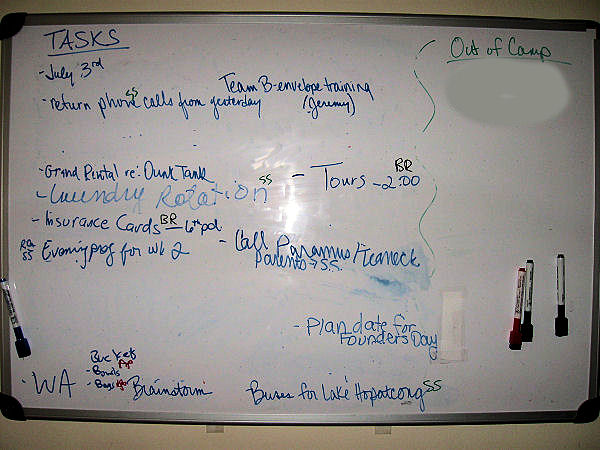 TASKS
Out of Camp
-July 3rd
Team B-envelope training
SS
-return phone calls from yesterday (Jeremy)
-Grand Rental re: Dunk Tank
BR
- Tours -2:00
SS
-Laundry Rotation
-Insurance Cards BR - 6th pd
RQ
SS Evening prog for wk 2
- Call Paramus/Teaneck
Parents → S.S.
-Plan date for
Founders Day
Bucket
-Bowls
-Bags
-WA
Brainstorm
Buses for Lake Hopatcong SS